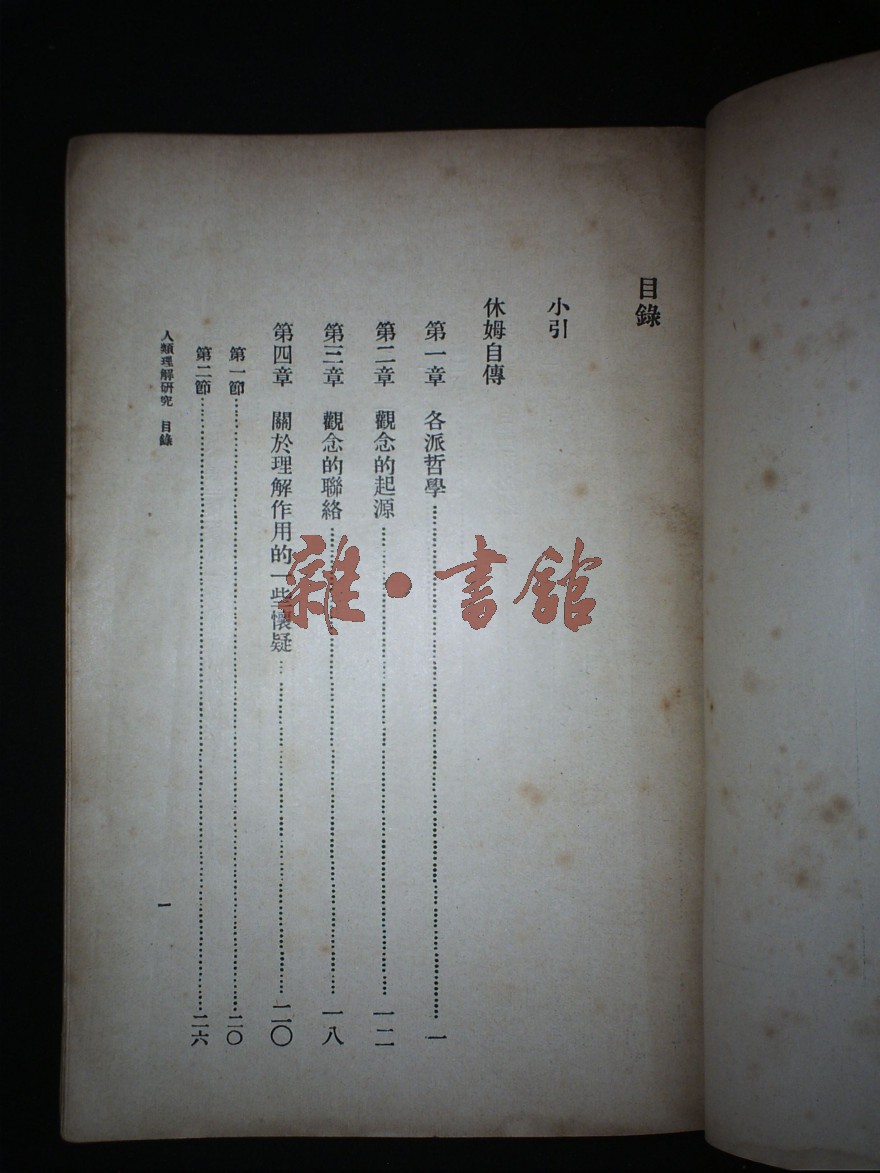 目錄
小引
休姆自傳
第一章 各派哲學 一
第二章 觀念的起源 一二
第三章 觀念的聯絡 一八
第四章 關於理解作用的一些懷疑 二〇
第一節 二〇
第二節 二六
人類理解研究 目錄 一
雜·書館